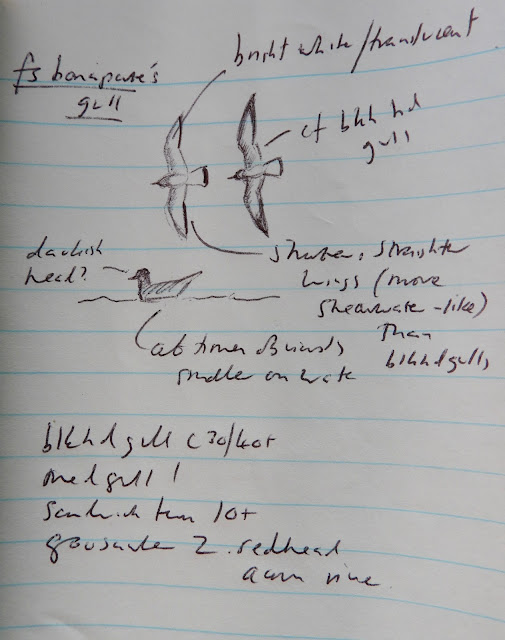 bright white/translucent
fs bonaparte's
gull
cf blkhd
gull
darkish
head?
shorter, straighter
wings (more
shearwater-like)
than
blkhd gulls
at times obviously
smaller on water
blkhd gull c 30/40+
med gull 1
sandwich tern 10+
goosander 2 redhead